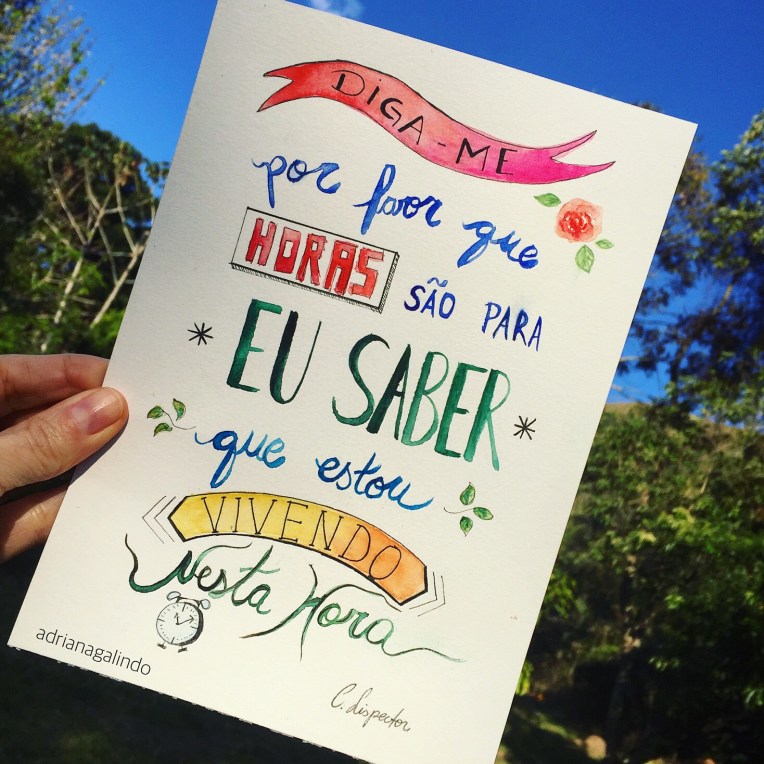 DIGA-ME
por favor que
HORAS SÃO PARA
EU SABER
que estou
VIVENDO
Nesta Hora
adrianagalindo
C. Lispector